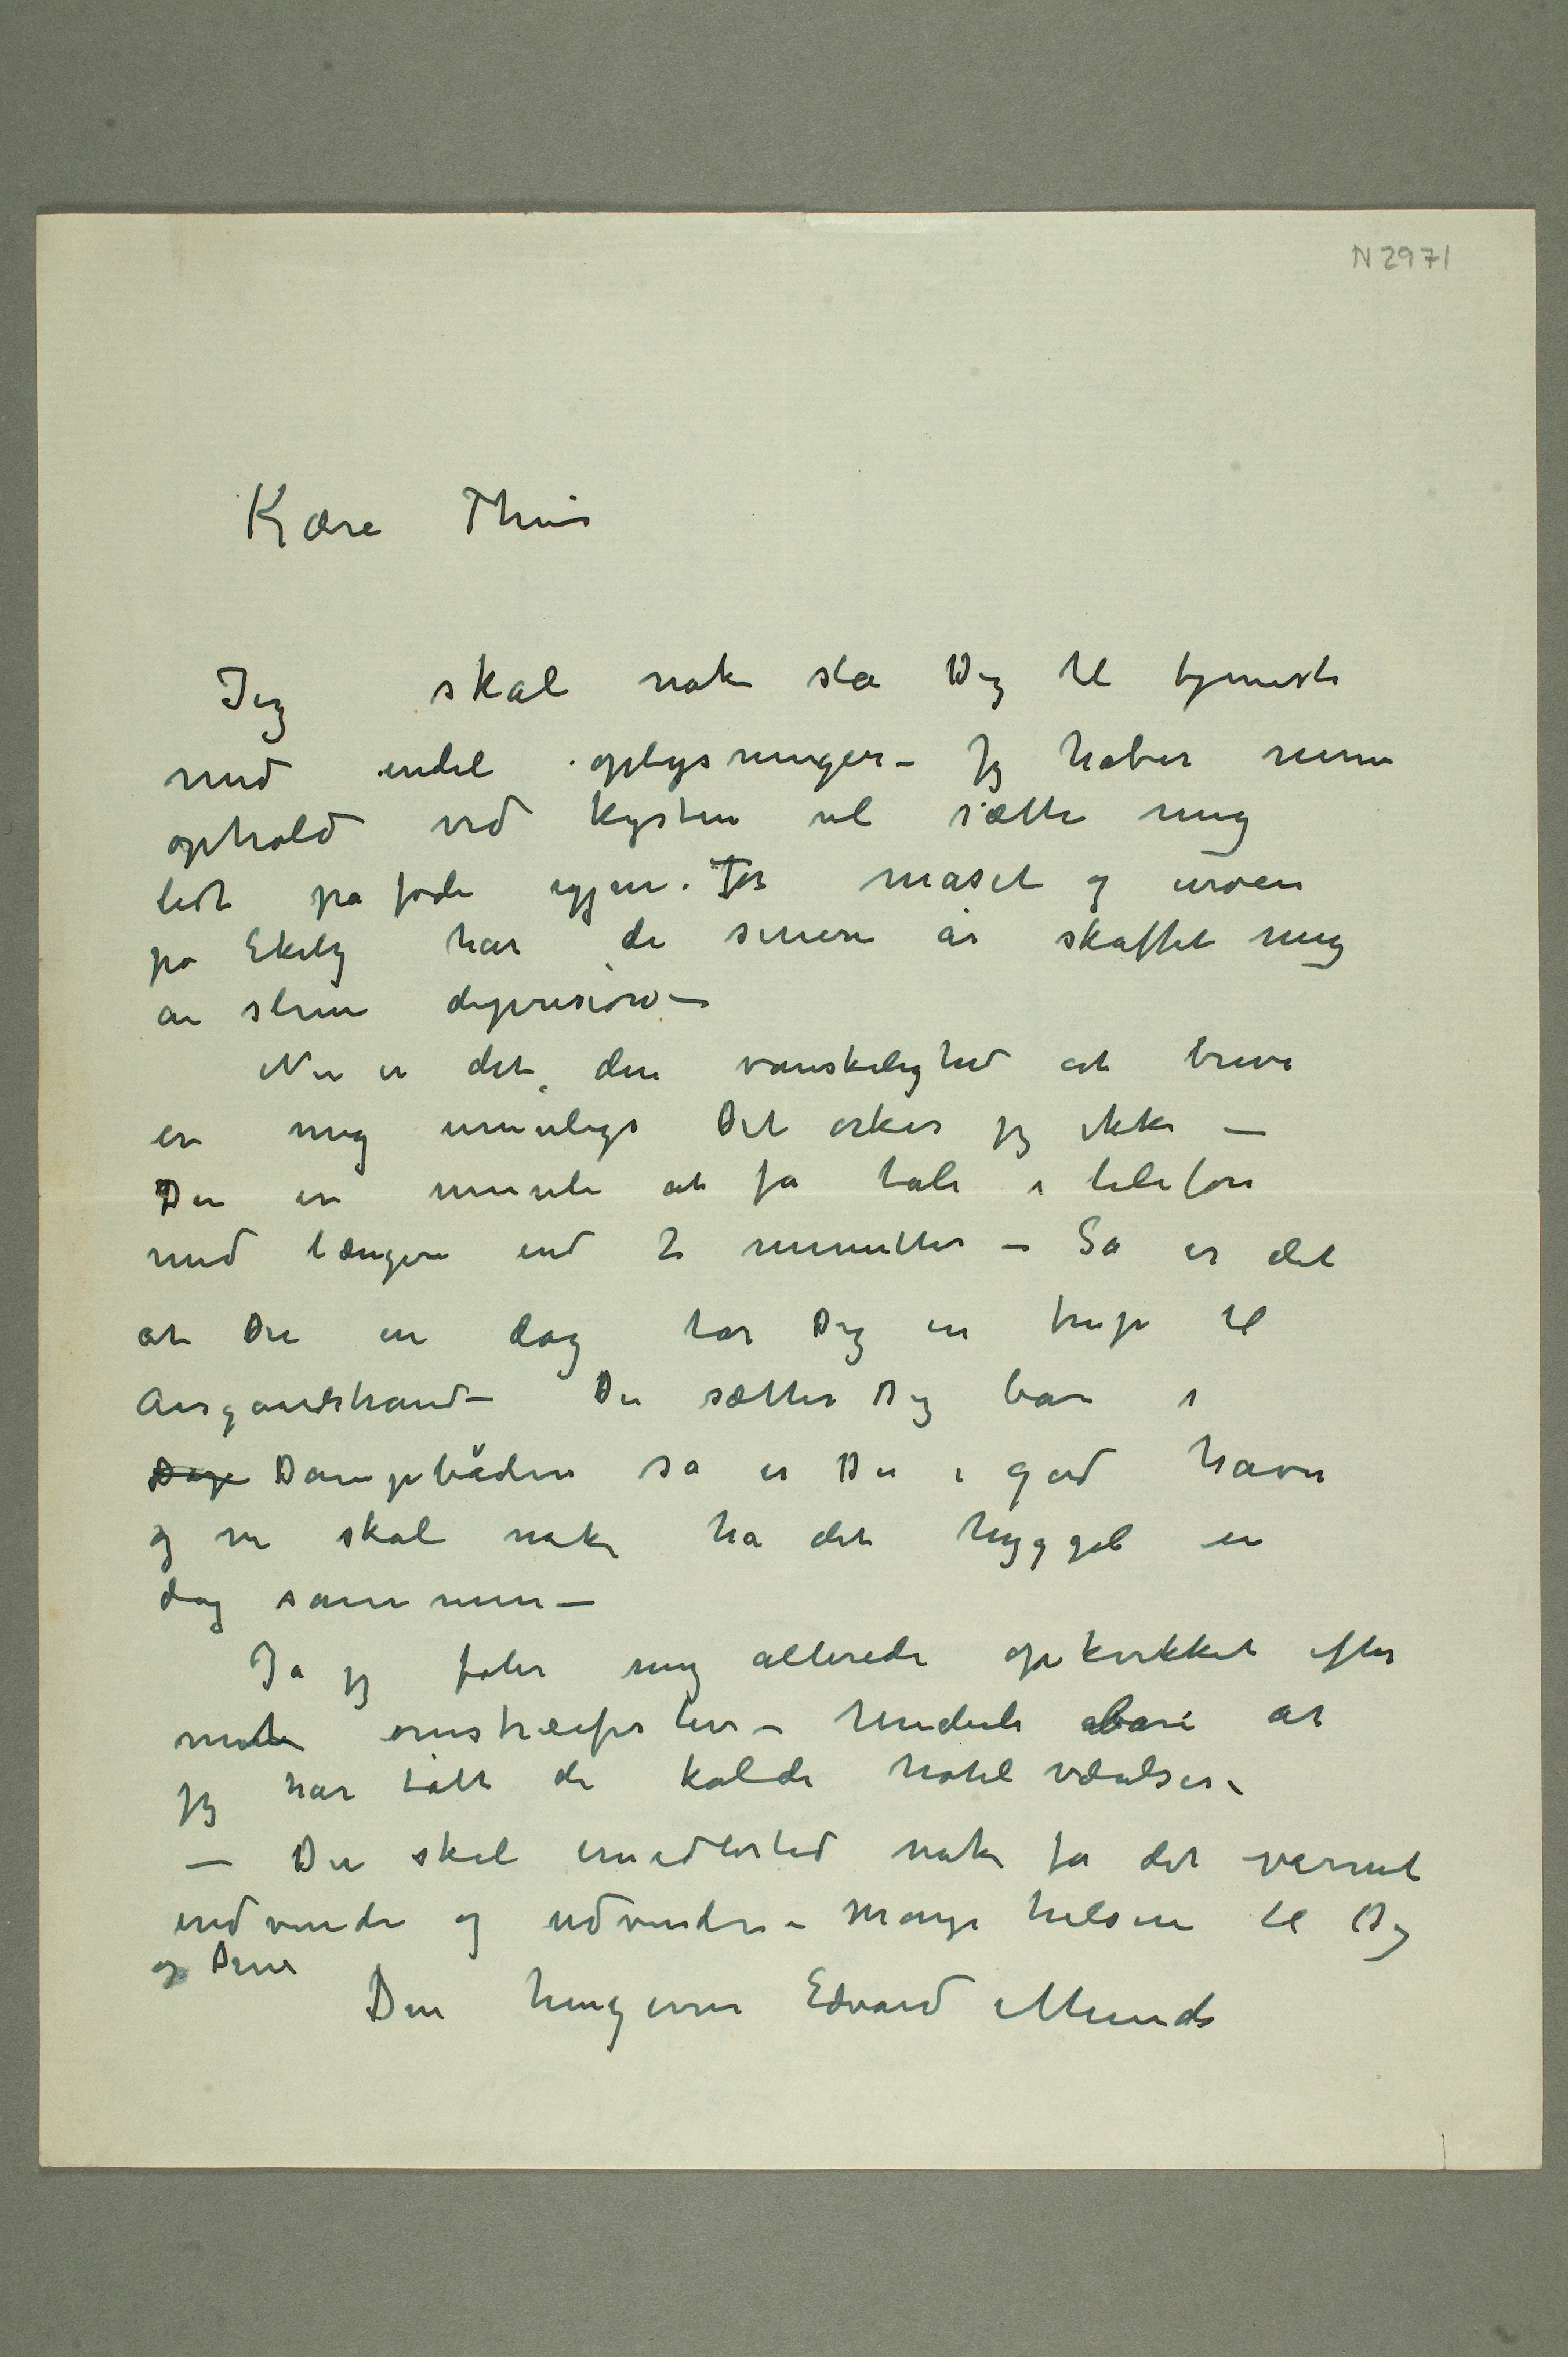 N 2971
Kjære Thiis
Jeg skal nok stå Dig til tjeneste
med endel oplysninger – Jeg håber mine
ophold ved kysten vil sætte mig
lidt på fode igjen. For maset og uroen
på Ekely har de senere år skaffet mig
en slem depression –
Nu er det den vanskelighed at breve
er mig umulige Det orker jeg ikke –
Du er umulig at få tale i telefon
med længere end 2 minutter – Så er det
at Du en dag tar Dig en trip til
Aasgaardstrand – Du sætter Dig bare i
Dampbåden så er Du i god havn
og vi skal nok ha det hyggeli en
dag sammen –
Ja jeg føler mig allerede opkvikket efter
mit omstreiferliv – Underli bare at
jeg har tålt de kolde hotelværelser –
– Du skal imidlertid nok få det varmt
indvendi og udvendi – Mange hilsene til Dig
og Dine
Din hengivne Edvard Munch